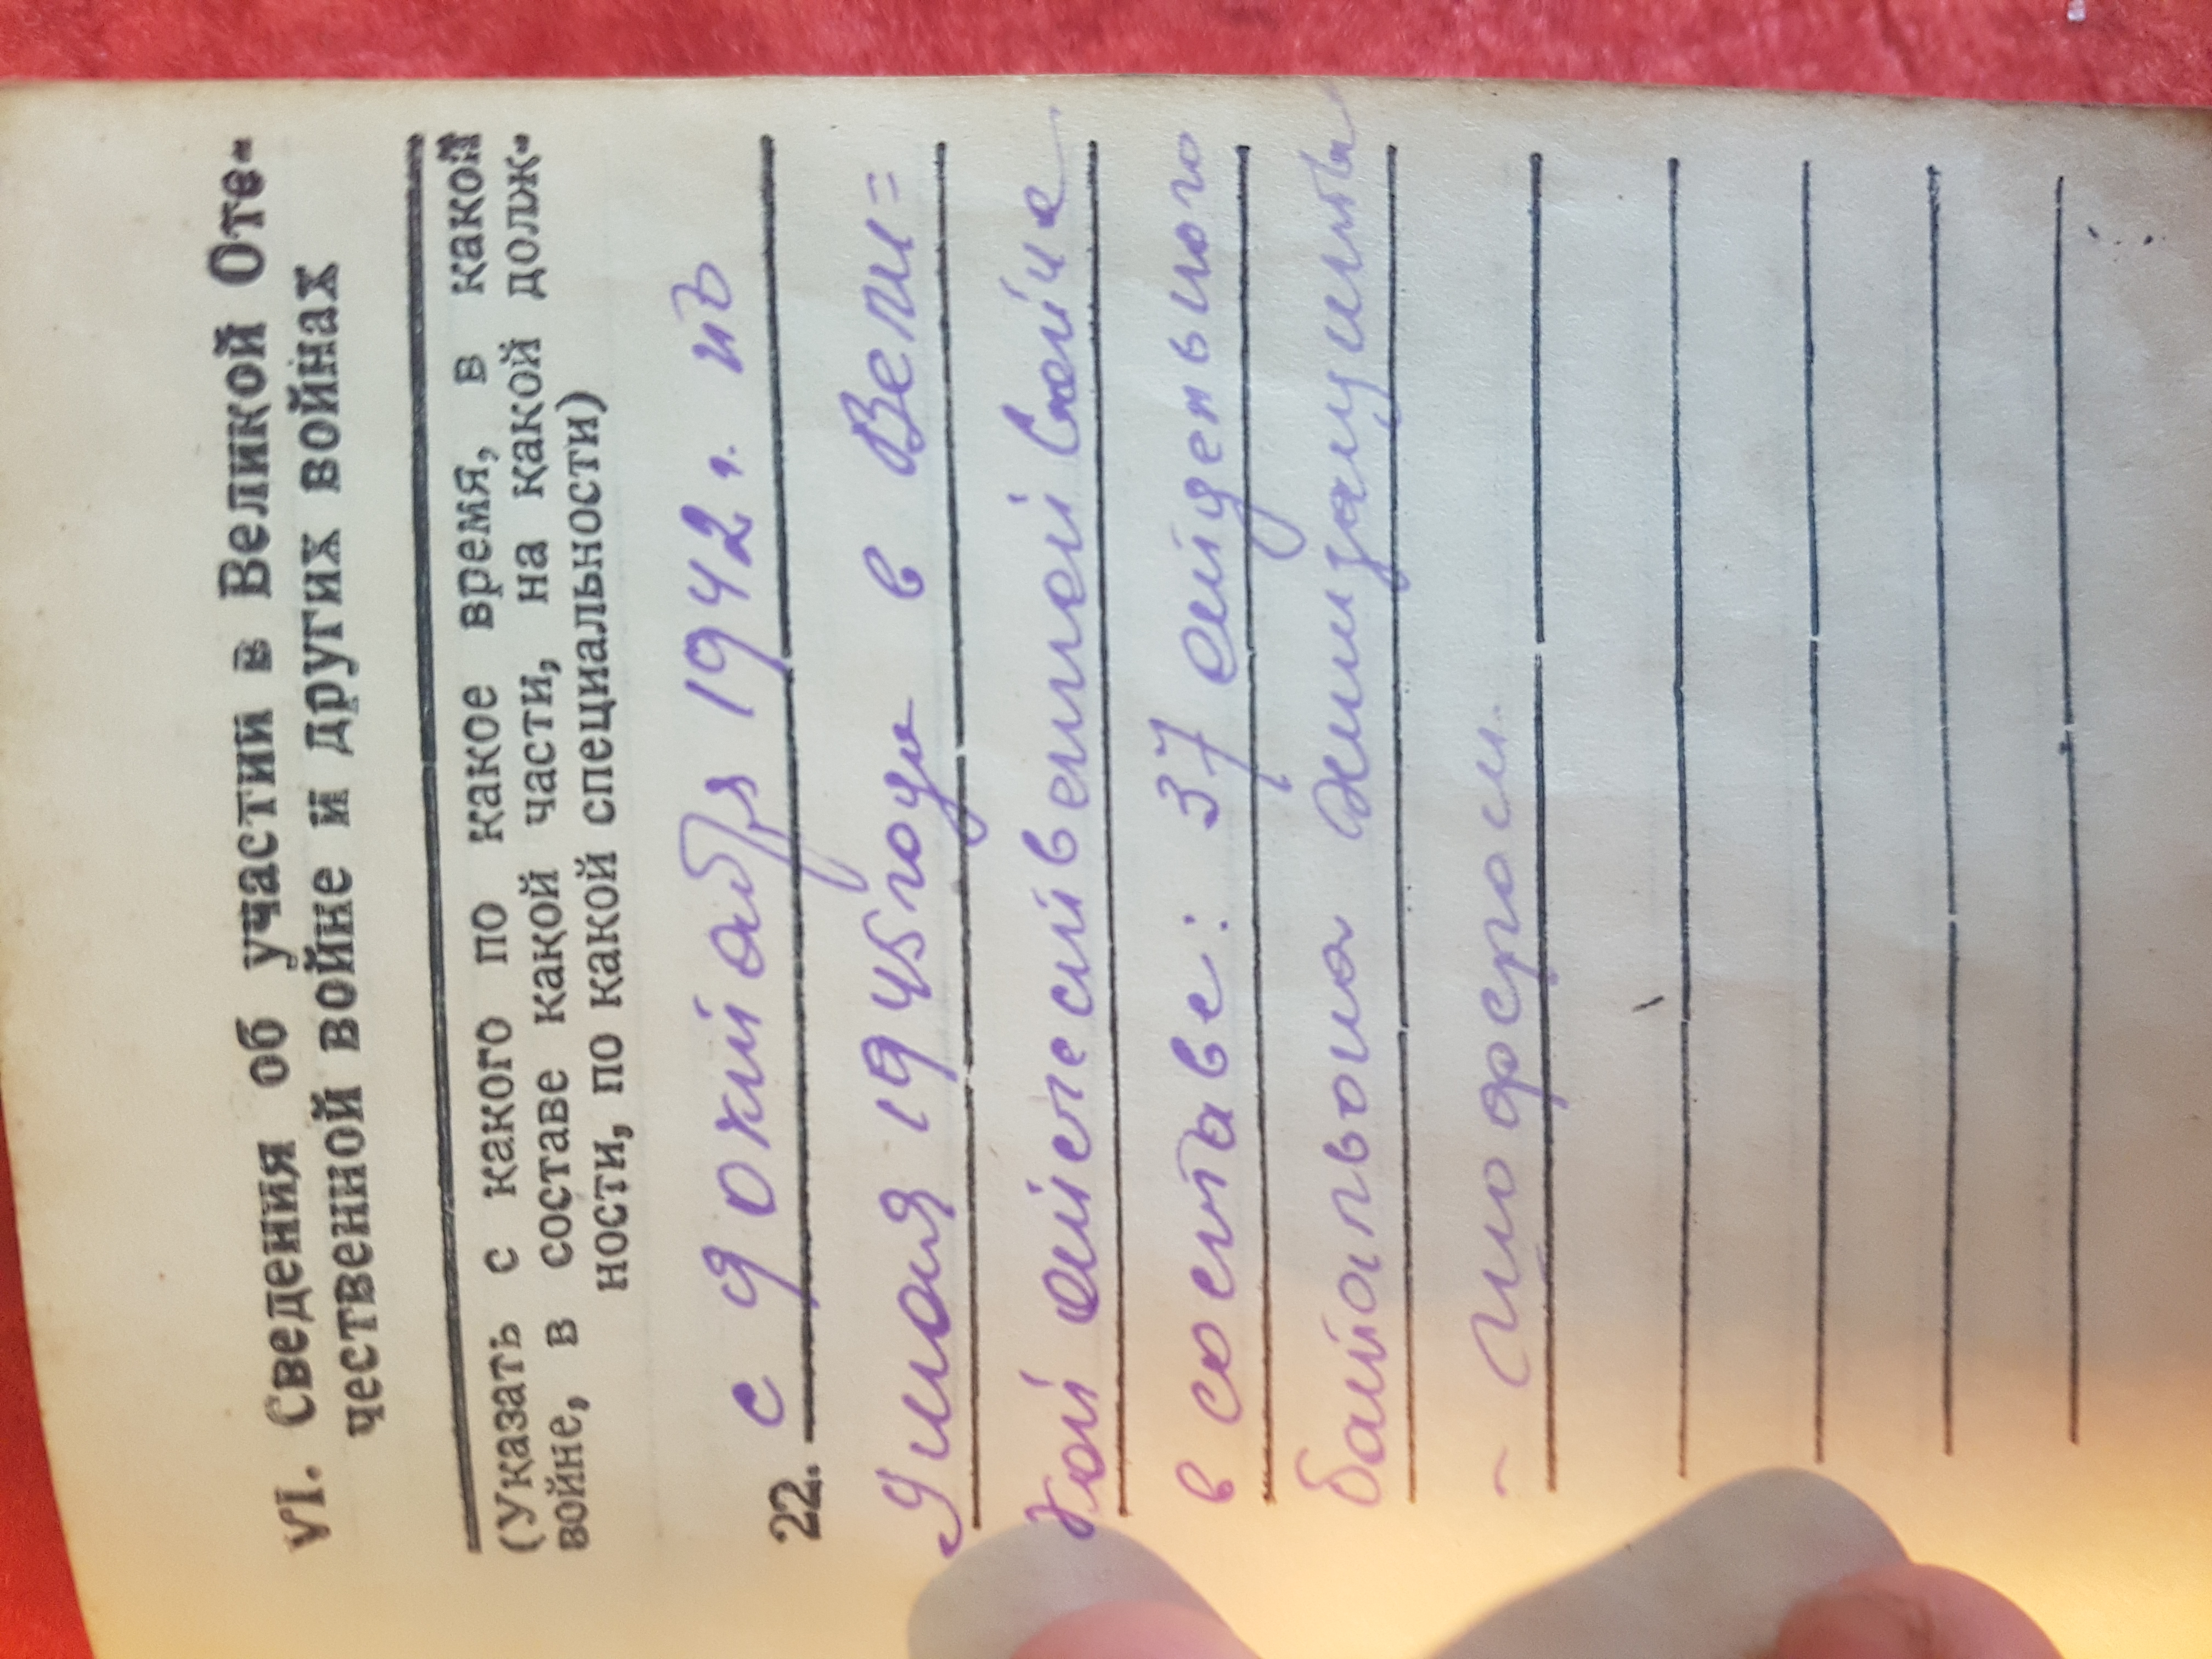 VI. Сведения об участии в Великой Оте-
чественной войне и других войнах
(Указать с какого по какое время, в какой
войне, в составе какой части, на какой долж-
ности, по какой специальности)
22. с 9 октября 1942 г. по
9 мая 1945 году в Вели=
кой отечественной войне
в составе: 37 отдельного
батальона
- шофером.